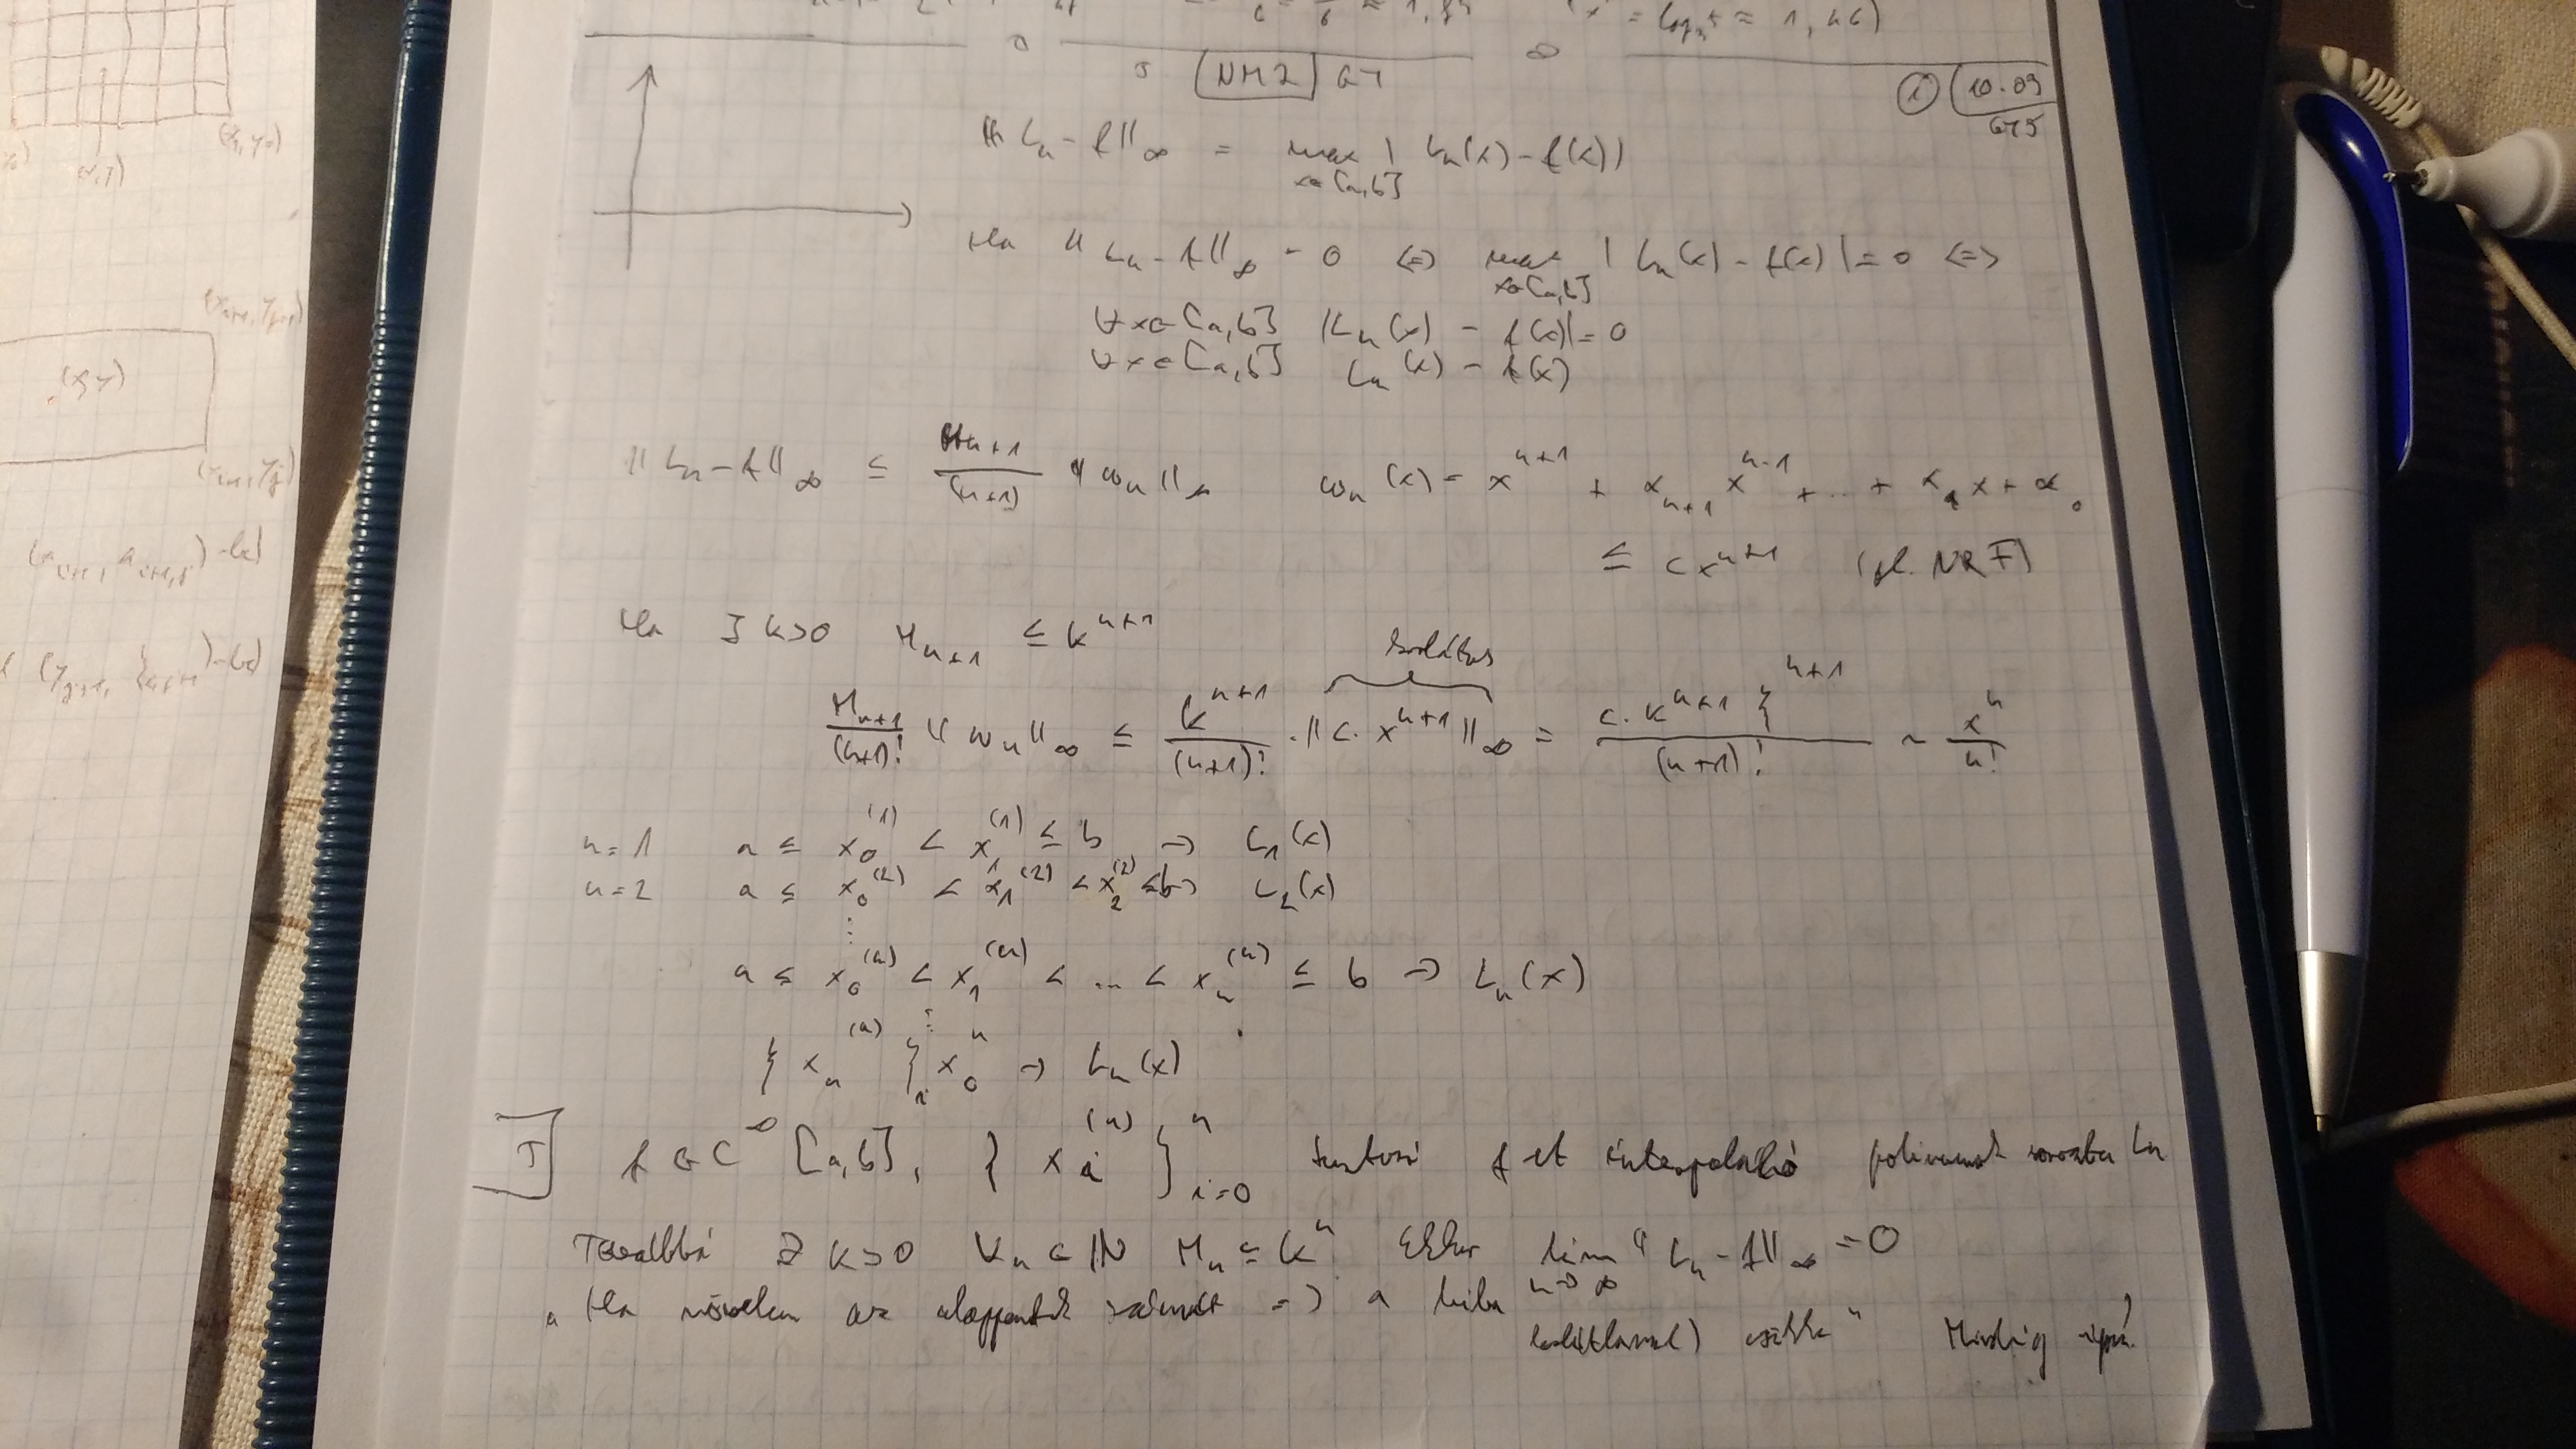 (x = log₂5 ≈ 1,46)
NM2 GY
① 10.09
GY5
‖Lₙ - f‖∞ = max x∈[a,b] |Lₙ(x) - f(x)|
Ha ‖Lₙ - f‖∞ = 0 ⇔ max x∈[a,b] |Lₙ(x) - f(x)| = 0 ⇔
∀x∈[a,b] |Lₙ(x) - f(x)| = 0
∀x∈[a,b] Lₙ(x) = f(x)
‖Lₙ - f‖∞ ≤ Mₙ₊₁/(n+1) ‖ωₙ‖∞ ωₙ(x) = x^(n+1) + αₙ₊₁ x^(n-1) + ... + α₁x + α₀
≤ c x^(n+1) (pl. NRF)
Ha ∃ k>0 Mₙ₊₁ ≤ k^(n+1)
korlátos
Mₙ₊₁/(n+1)! ‖ωₙ‖∞ ≤ k^(n+1)/(n+1)! · ‖c · x^(n+1)‖∞ = c · k^(n+1) ξ^(n+1)/(n+1)! ~ xⁿ/n!
n=1 a ≤ x₀^(1) < x₁^(1) ≤ b → L₁(x)
n=2 a ≤ x₀^(2) < x₁^(2) < x₂^(2) ≤ b → L₂(x)
⋮
a ≤ x₀^(n) < x₁^(n) < ... < xₙ^(n) ≤ b → Lₙ(x)
⋮
{xₙ^(n)} → Lₙ(x)
T f ∈ C^∞[a,b], {xᵢ^(n)}ⁿᵢ₌₀ f-et interpoláló polinomok sorozata Lₙ
Továbbá ∃ k>0 ∀n∈ℕ Mₙ ≤ kⁿ Ekkor lim n→∞ ‖Lₙ - f‖∞ = 0
„Ha növelem az alappontok számát ⇒ a hiba
korlátlanul) csökken" Mindig
(x,y)